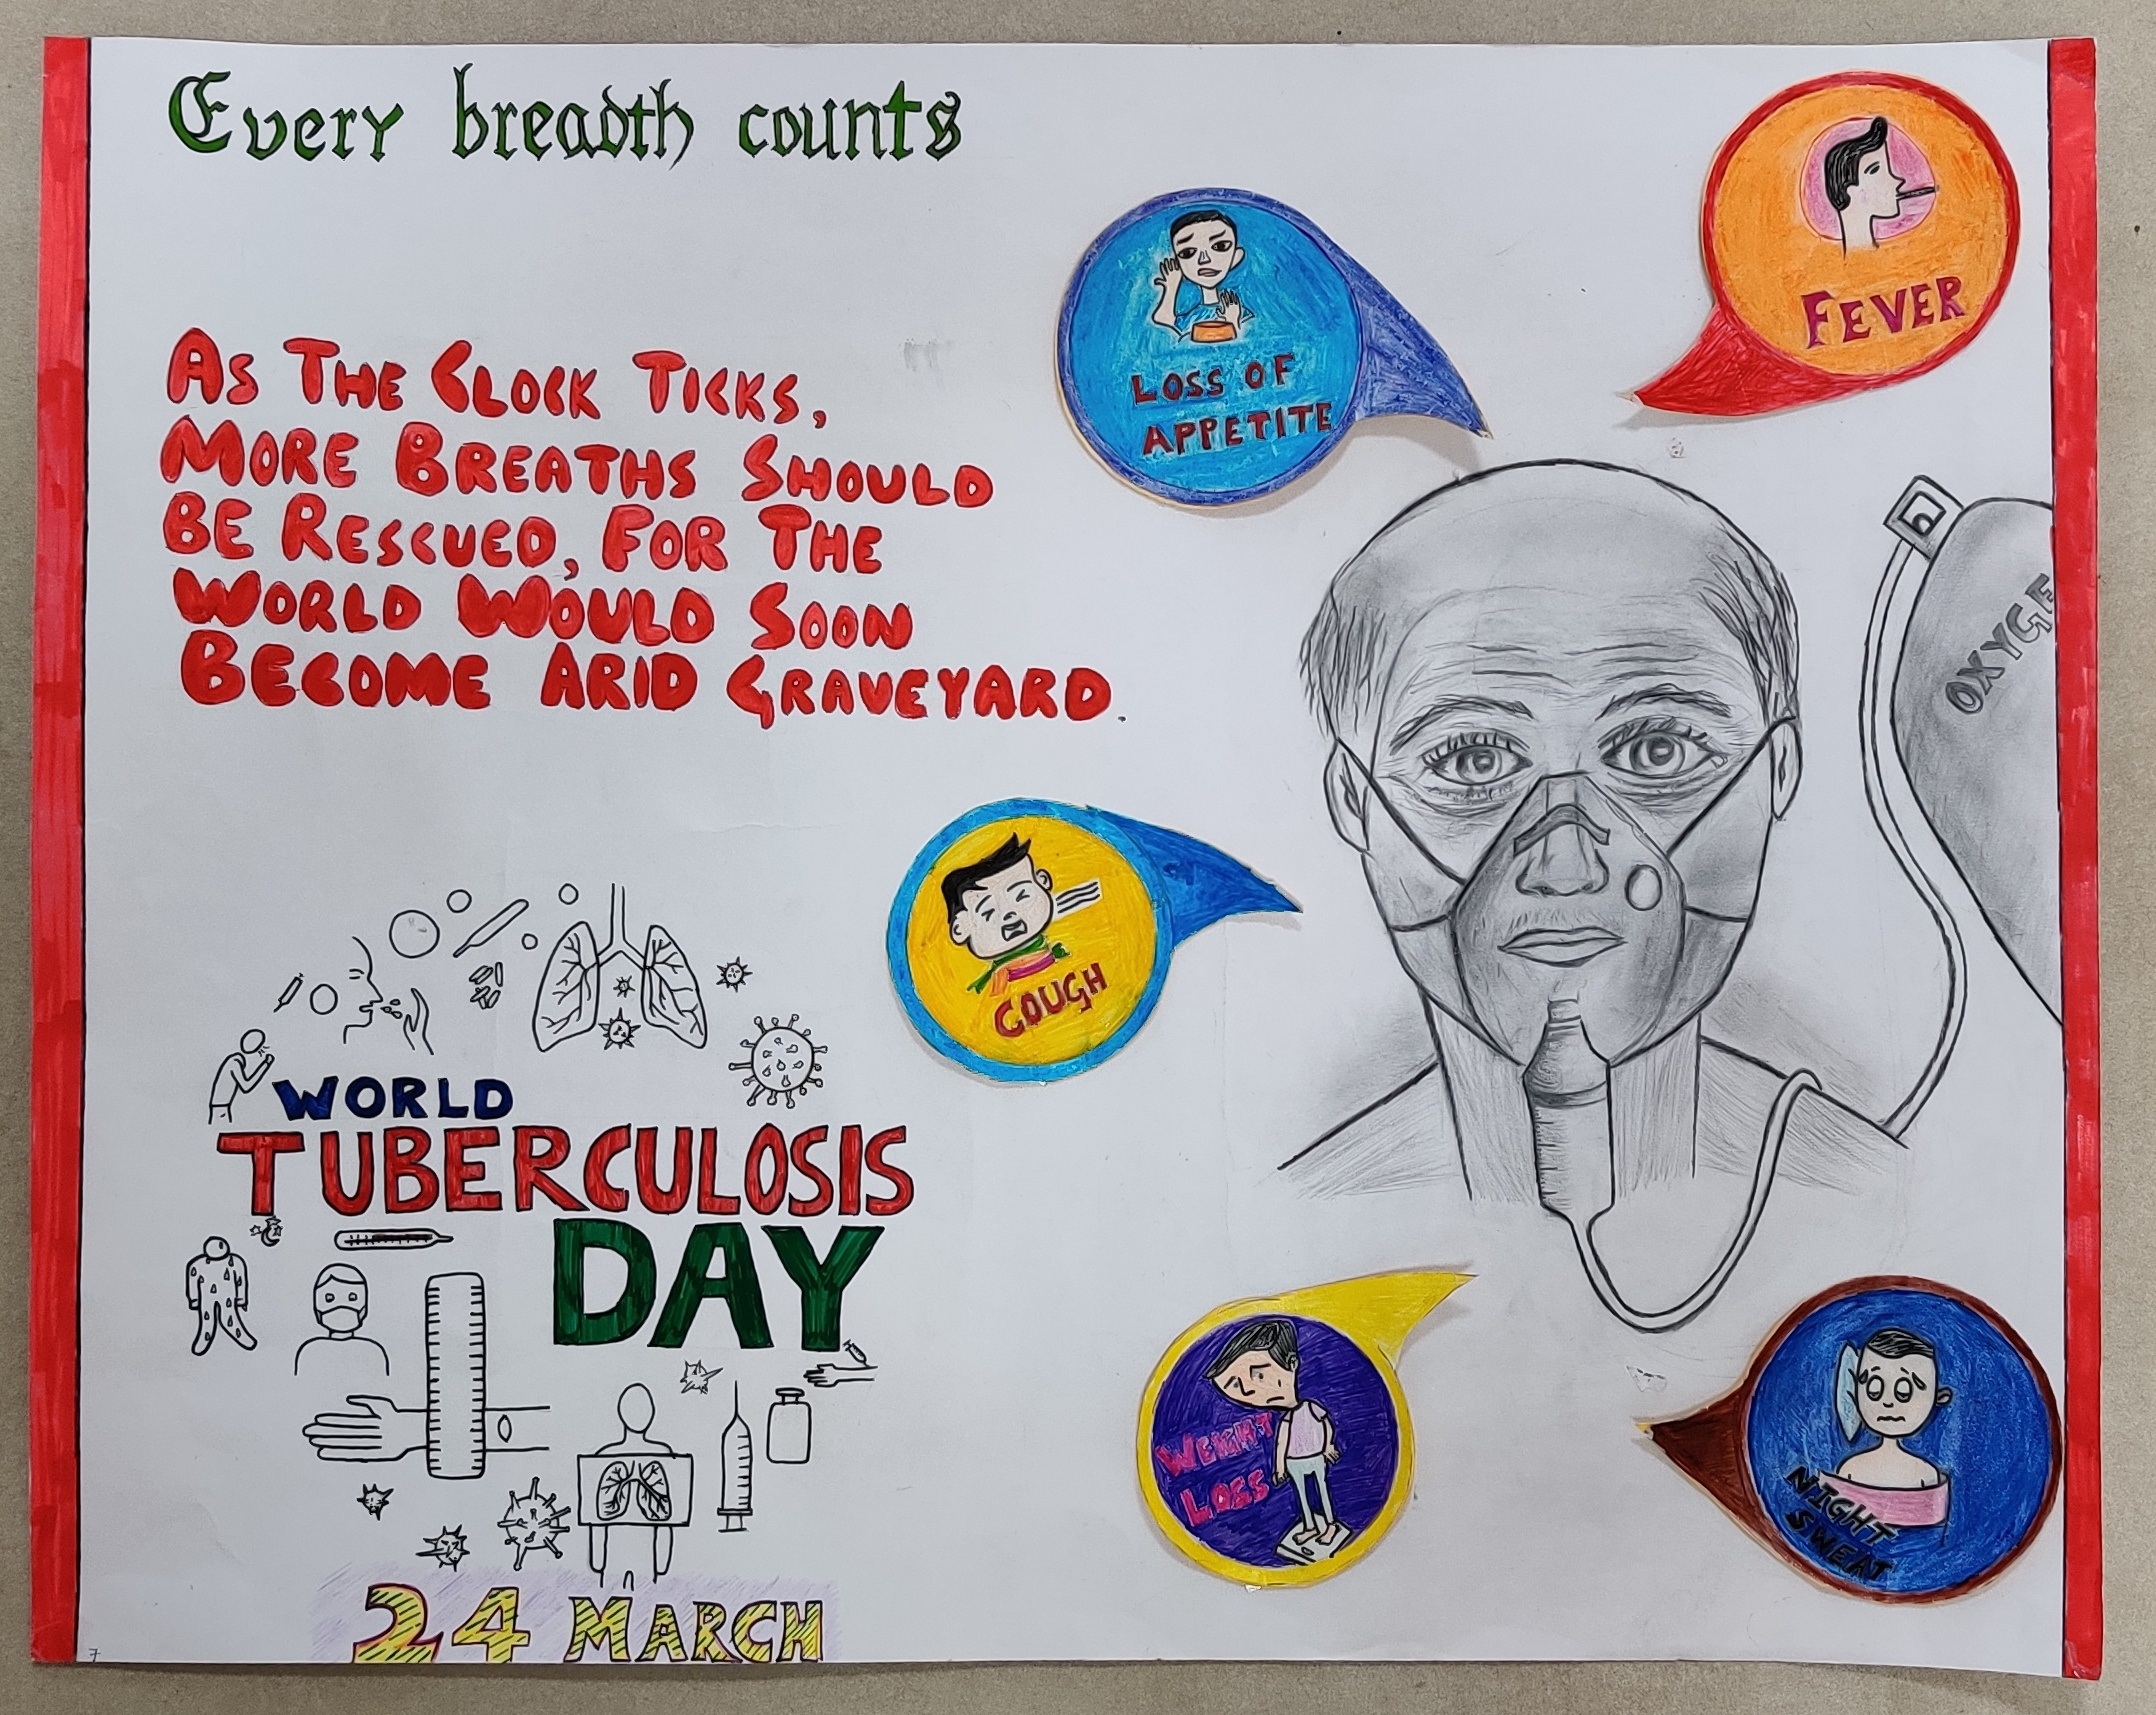 Every breadth counts
AS THE CLOCK TICKS,
MORE BREATHS SHOULD
BE RESCUED, FOR THE
WORLD WOULD SOON
BECOME ARID GRAVEYARD.
LOSS OF
APPETITE
FEVER
OXYGE
COUGH
WORLD
TUBERCULOSIS
DAY
24 MARCH
WEIGHT
LOSS
NIGHT
SWEAT
7